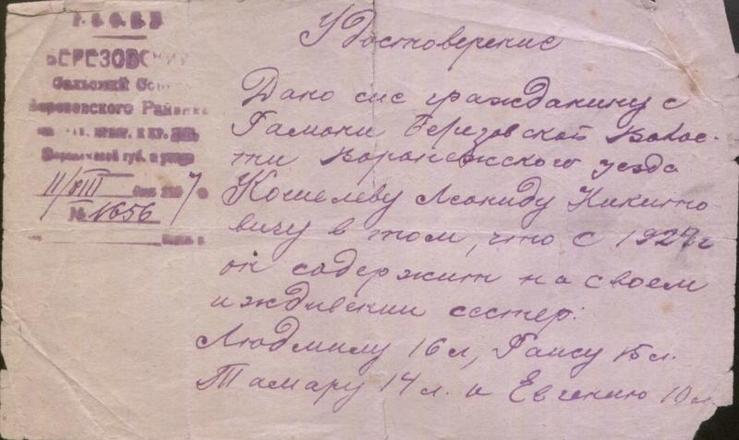 Р.С.Ф.С.Р.
БЕРЕЗОВСКИЙ
Сельский Сов
Березовского Района
кр. деп.
губ. и уезда
11/VIII 7
№ 1656
Удостоверение
Дано сие гражданину с
Рамони Березовской Волос-
ти Воронежского уезда
Кошелеву Леониду Никито-
вичу в том, что с 1924 г
он содержит на своем
иждивении сестер:
Людмилу 16 л, Раису 15 л.
Тамару 14 л. и Евгению 10 л.